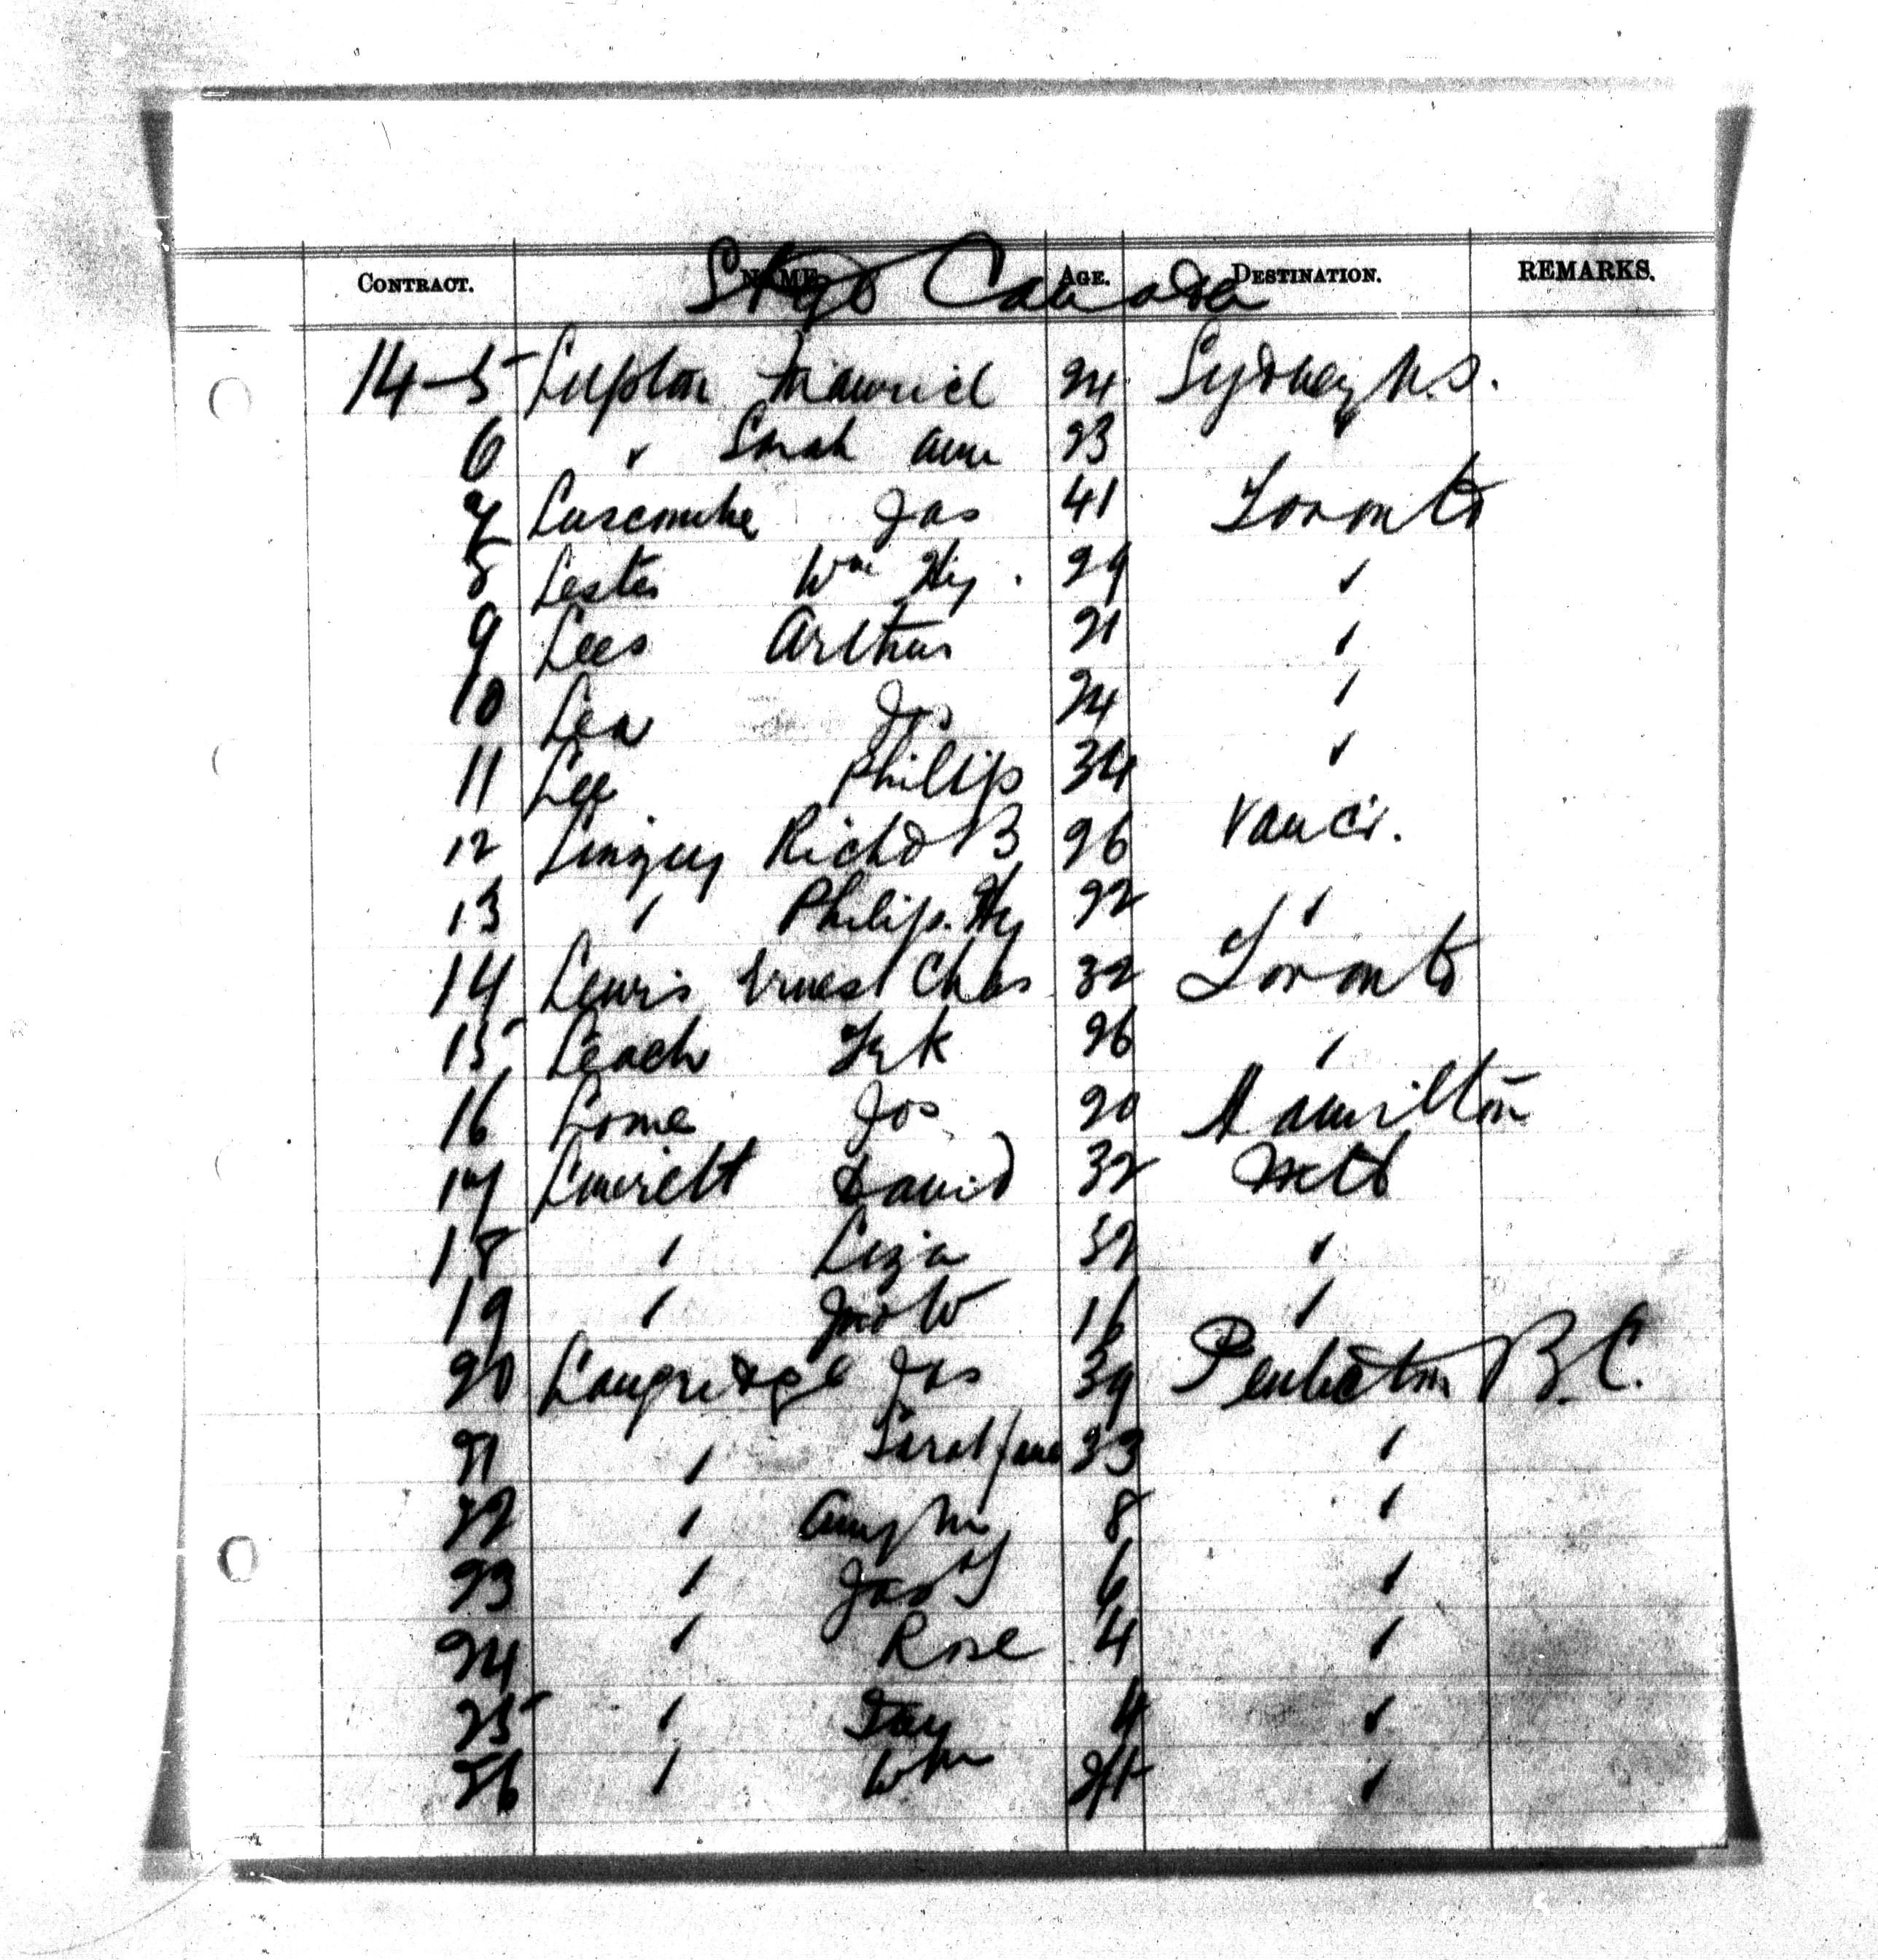 CONTRACT. NAME. AGE. DESTINATION. REMARKS.
Canada
14-5 Lupton 24 Sydney N.S.
6 " Sarah Ann 23
7 Luscombe Jas 41 Toronto
8 Lester Wm Hy. 29 "
9 Lees Arthur 21 "
10 Lea 24 "
11 Lee Philip 34 "
12 Richd B 26 Vancr.
13 " Philip Hy 22 "
14 Lewis Ernest Chas 32 Toronto
15 Leach Frk 26 "
16 Jos 20 Hamilton
17 David 32
18 " Liza 32 "
19 " Jno W 16 "
20 Langridge Jas 39 Penticton B.C.
21 " Sarah Jane 33 "
22 " Amy M 8 "
23 " 6 "
24 " Rose 4 "
25 " "
26 " Wm "